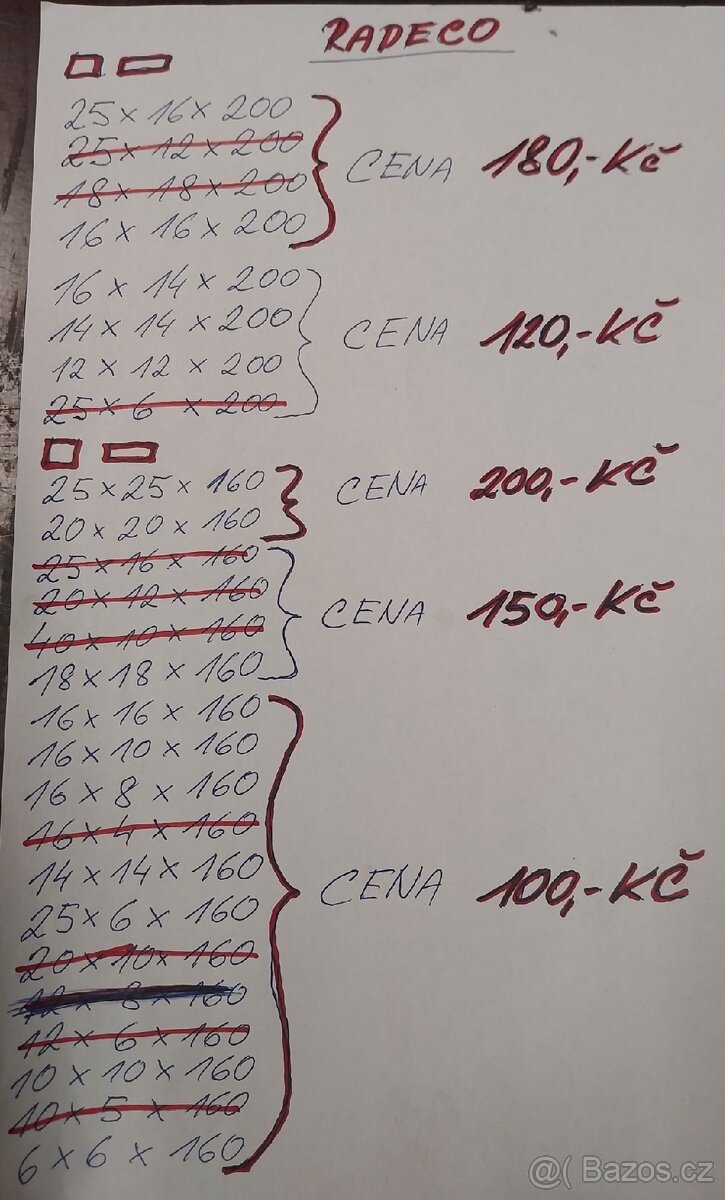 RADECO
25 x 16 x 200
25 x 12 x 200
18 x 18 x 200
16 x 16 x 200
CENA 180,-Kč
16 x 14 x 200
14 x 14 x 200
12 x 12 x 200
25 x 6 x 200
CENA 120,-KČ
25 x 25 x 160
20 x 20 x 160
CENA 200,-KČ
25 x 16 x 160
20 x 12 x 160
40 x 10 x 160
18 x 18 x 160
CENA 150,-Kč
16 x 16 x 160
16 x 10 x 160
16 x 8 x 160
16 x 4 x 160
14 x 14 x 160
25 x 6 x 160
20 x 10 x 160
12 x 8 x 160
12 x 6 x 160
10 x 10 x 160
10 x 5 x 160
6 x 6 x 160
CENA 100,-KČ
@( Bazos.cz